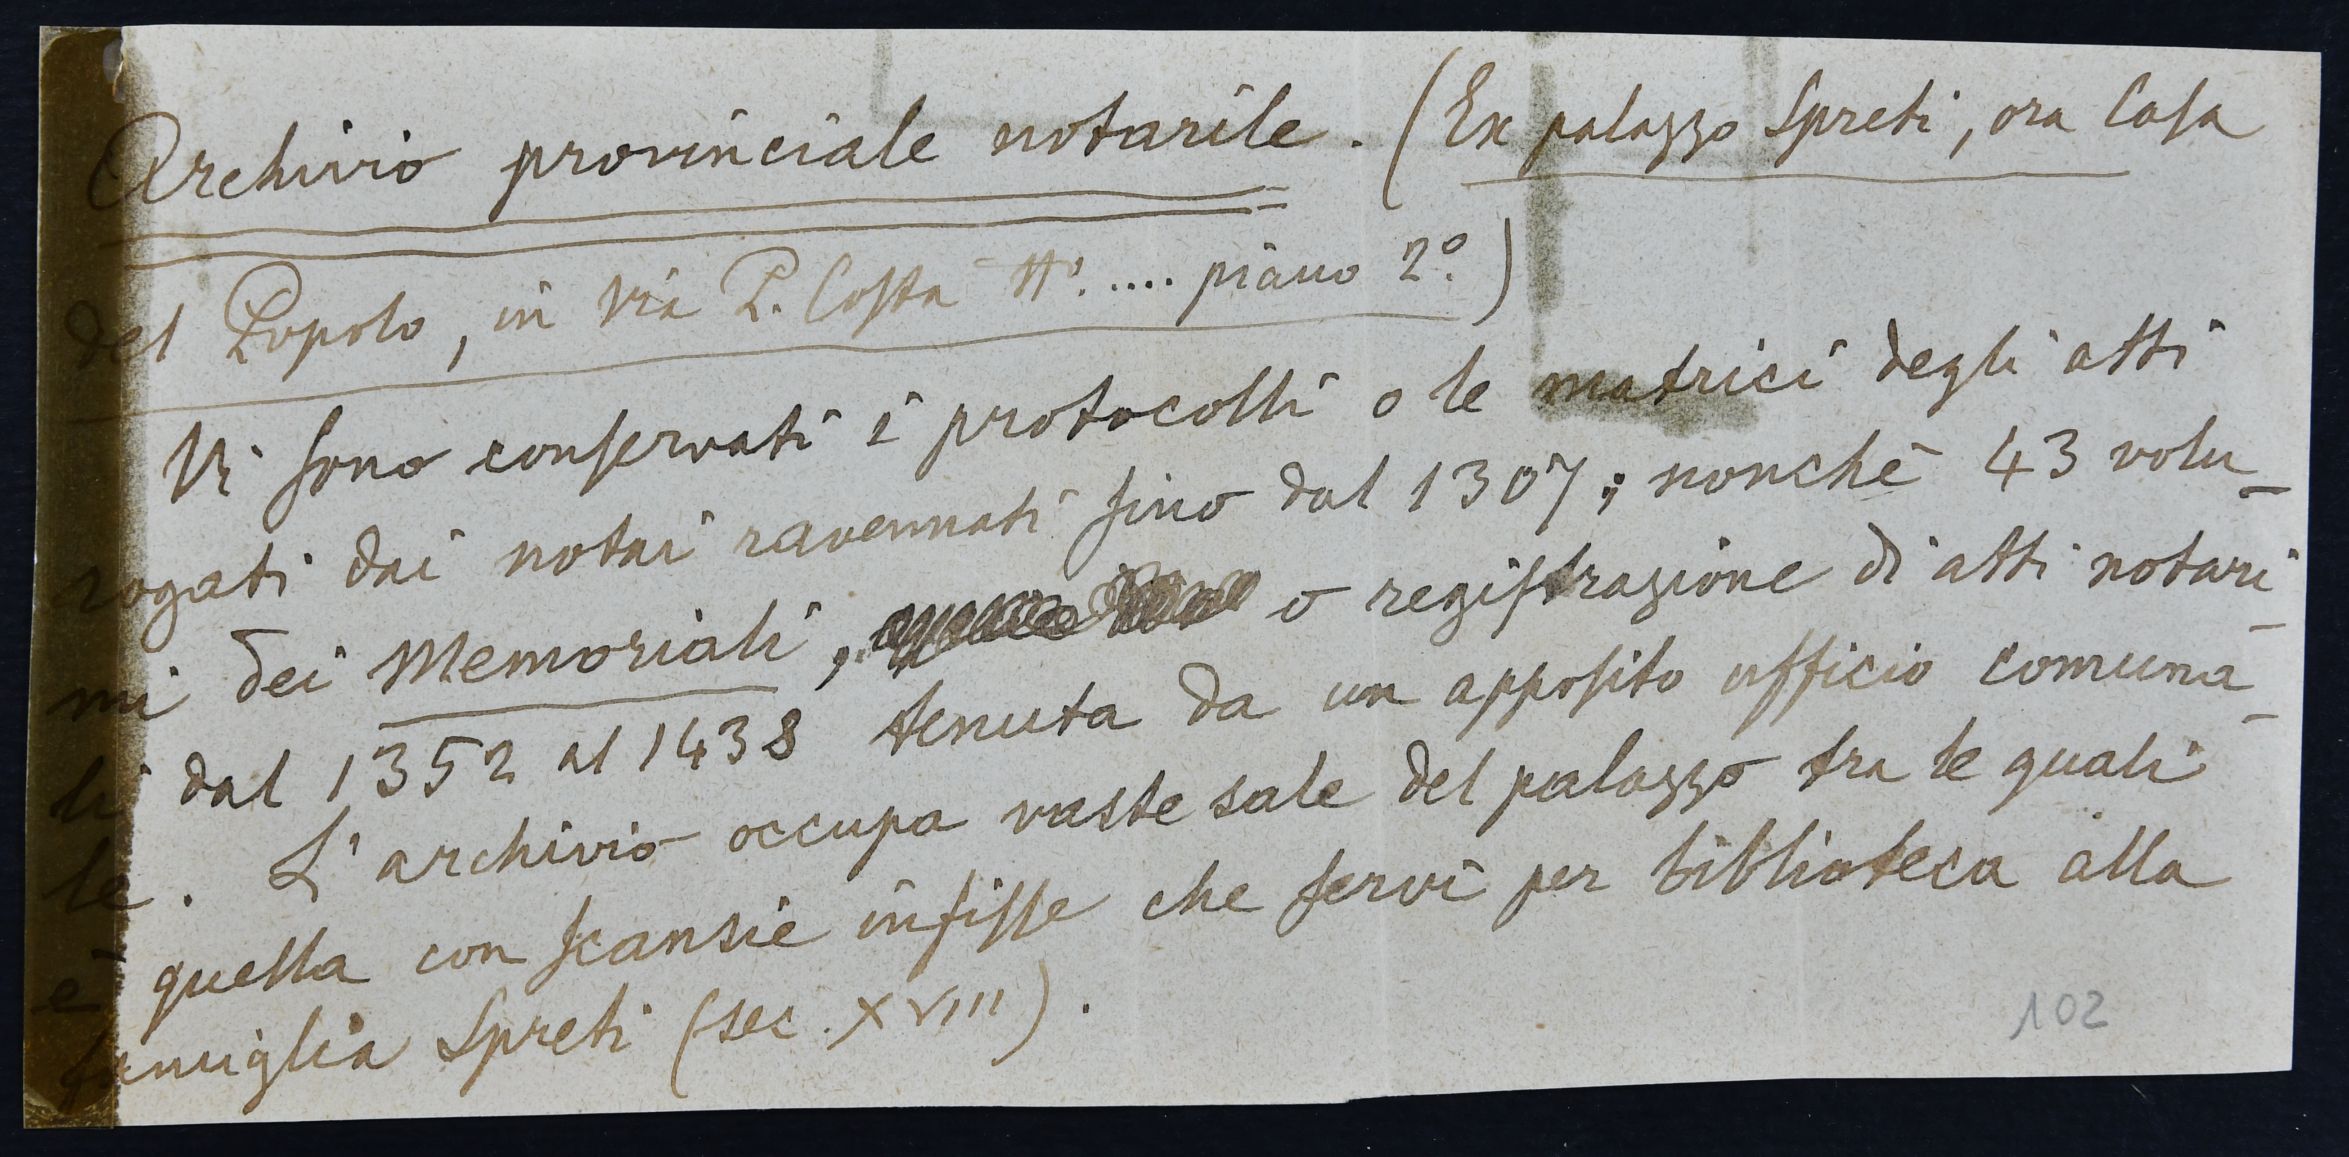 Archivio provinciale notarile. (Ex palazzo Spreti, ora Casa
del Popolo, in Via P. Costa N°. .... piano 2°.)
Vi sono conservati i protocolli o le matrici degli atti
rogati dai notai ravennati fino dal 1307; nonchè 43 volu-
mi dei Memoriali, o registrazione di atti notari-
li dal 1352 al 1438 tenuta da un apposito ufficio comuna-
le. L'archivio occupa vaste sale del palazzo tra le quali
è quella con scansie infisse che servì per biblioteca alla
famiglia Spreti (sec. XVIII).
102